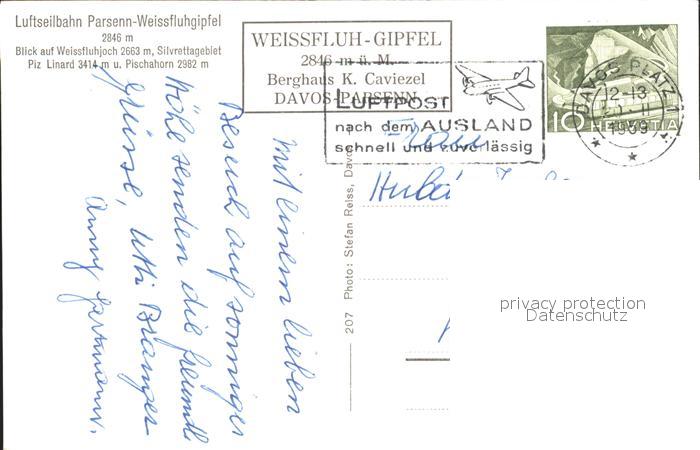 Luftseilbahn Parsenn-Weissfluhgipfel
2846 m
Blick auf Weissfluhjoch 2663 m, Silvrettagebiet
Piz Linard 3414 m u. Pischahorn 2982 m
WEISSFLUH-GIPFEL
2846 m ü. M.
Berghaus K. Caviezel
DAVOS-PARSENN
LUFTPOST
nach dem AUSLAND
schnell und zuverlässig
DAVOS PLATZ 1
12-13
II
1959
10 HELVETIA
Frau
Mit einem lieben
Besuch auf sonniger
Höhe senden die freundl
Grüsse,
Anny
207 Photo: Stefan Reiss, Davo
privacy protection
Datenschutz